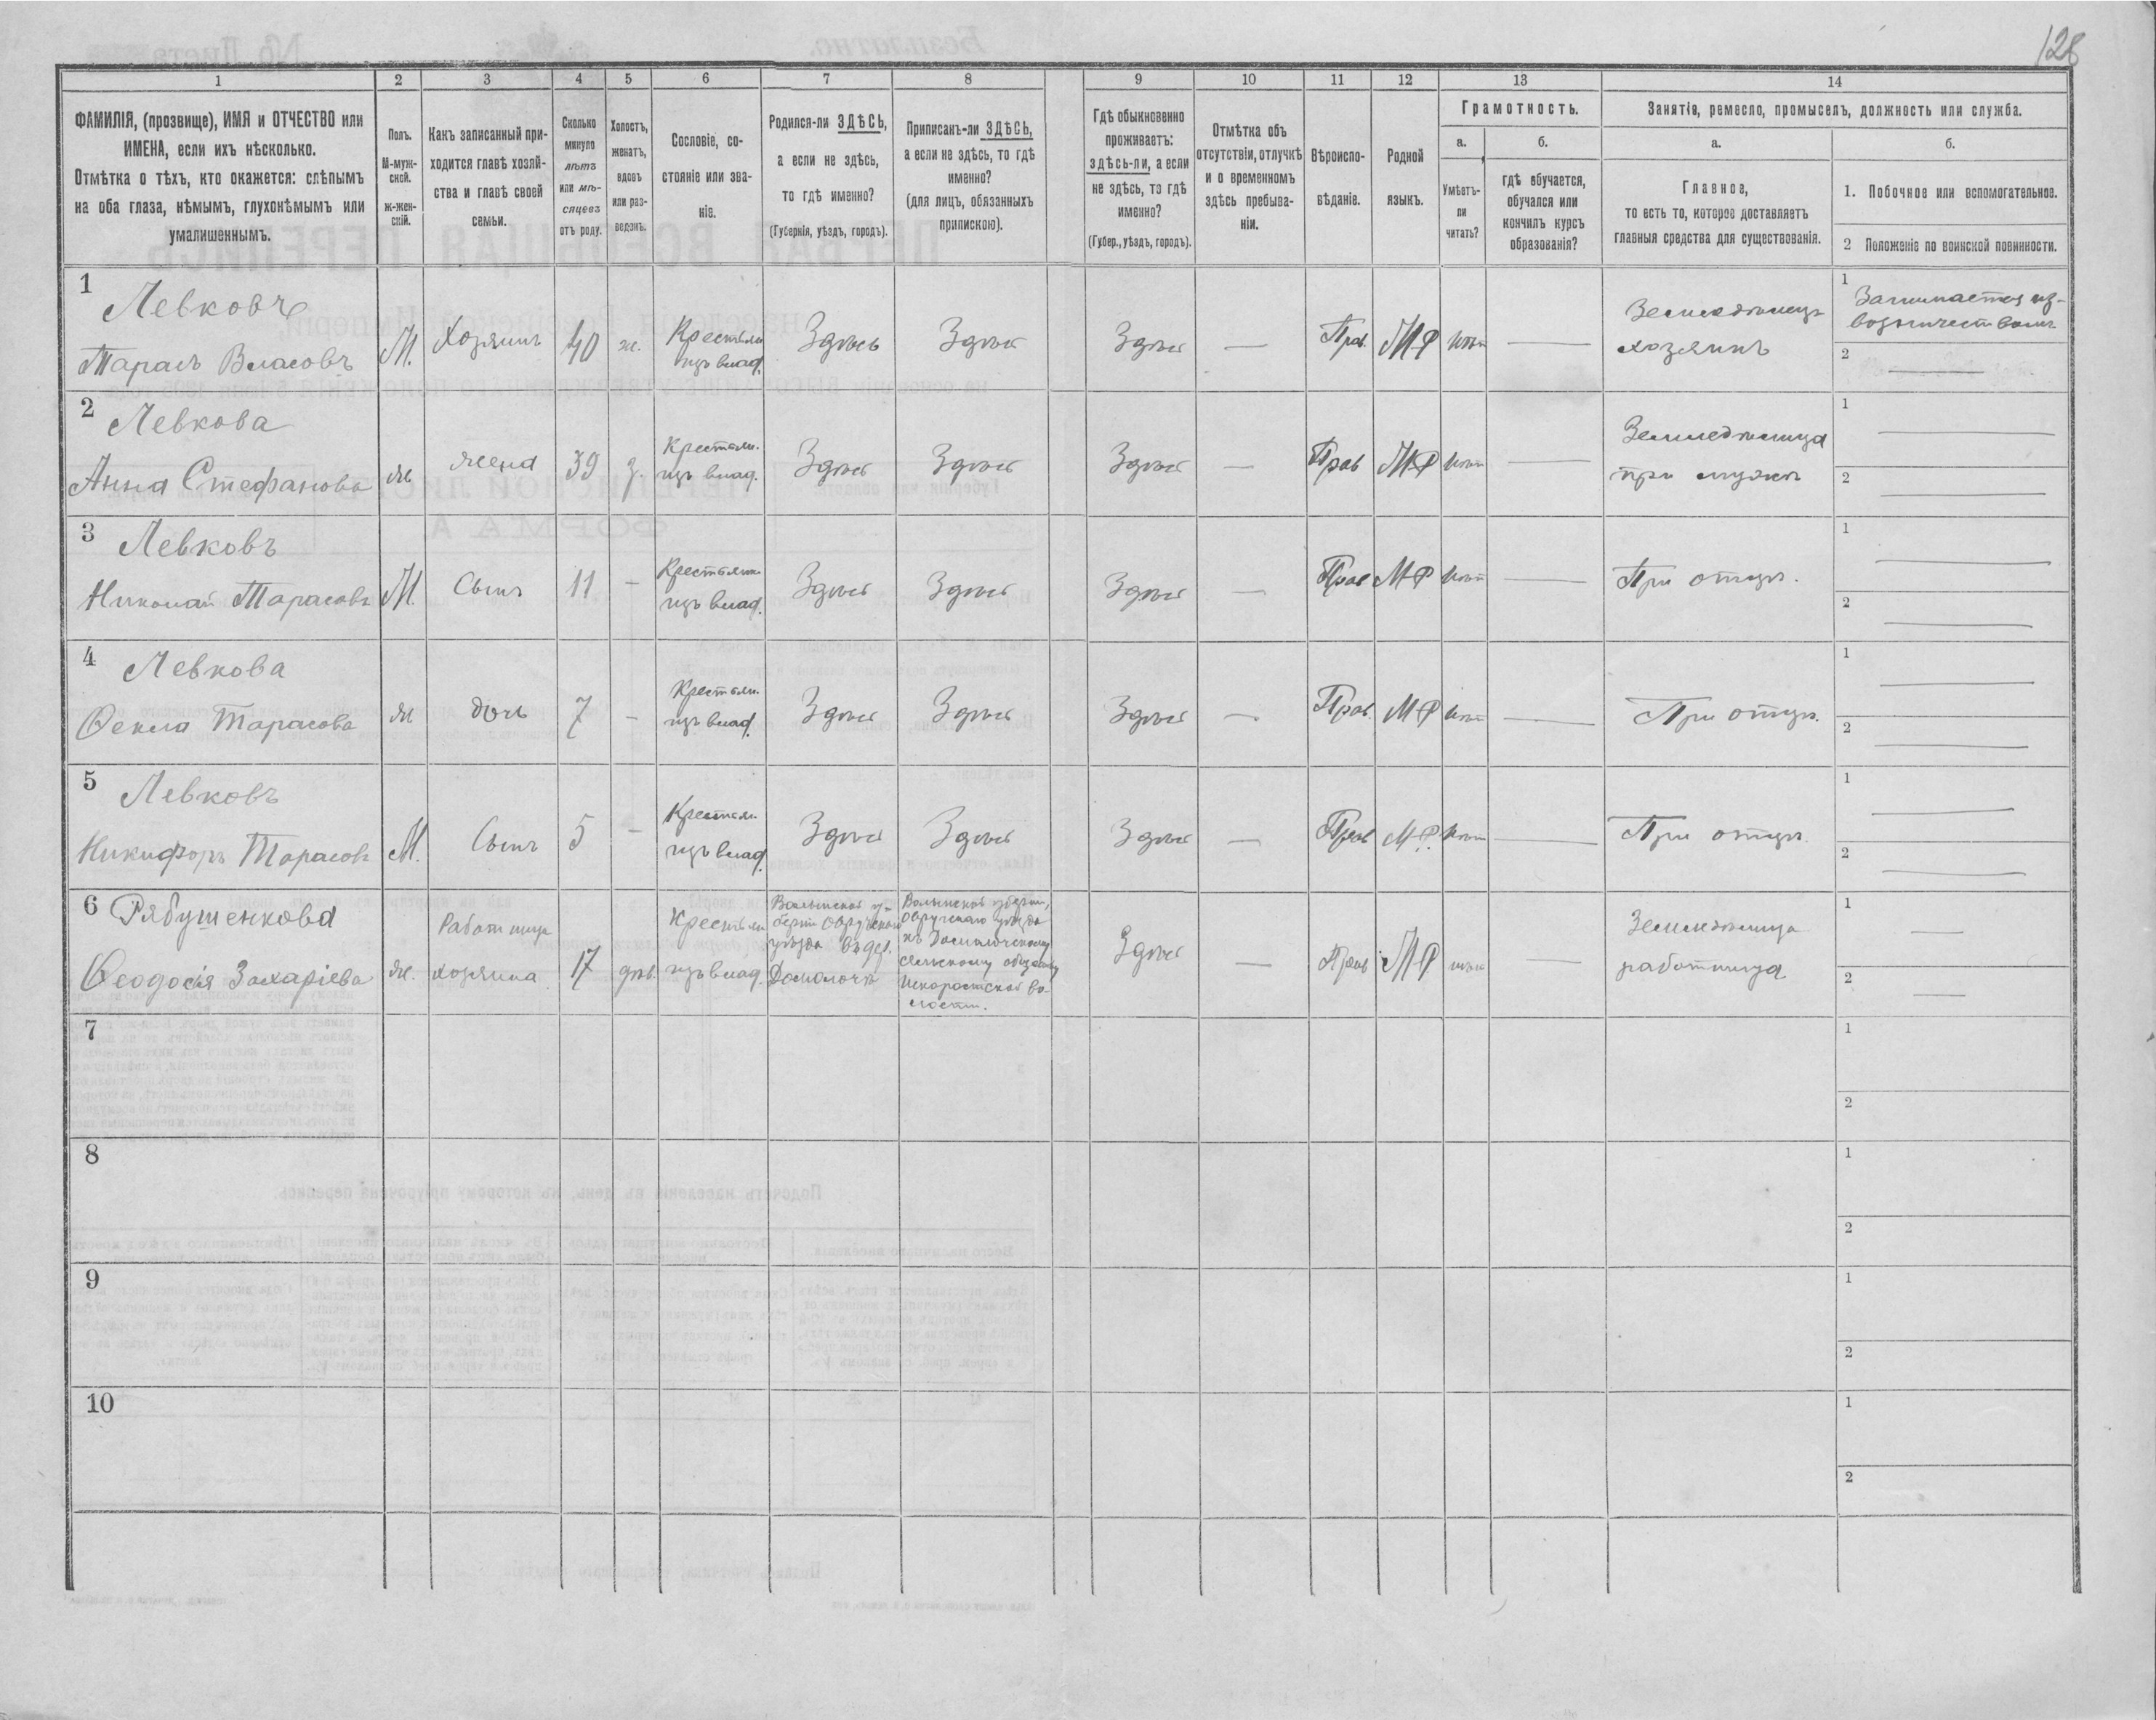 128
1
2
3
4
5
6
7
8
9
10
11
12
13
14
ФАМИЛІЯ, (прозвище), ИМЯ и ОТЧЕСТВО или
ИМЕНА, если ихъ нѣсколько.
Отмѣтка о тѣхъ, кто окажется: слѣпымъ
на оба глаза, нѣмымъ, глухонѣмымъ или
умалишеннымъ.
Полъ.
М-муж-
ской.
ж-жен-
скій.
Какъ записанный при-
ходится главѣ хозяй-
ства и главѣ своей
семьи.
Сколько
минуло
лѣтъ
или мѣ-
сяцевъ
отъ роду.
Холостъ,
женатъ,
вдовъ
или раз-
веденъ.
Сословіе, со-
стояніе или зва-
ніе.
Родился-ли ЗДѢСЬ,
а если не здѣсь,
то гдѣ именно?
(Губернія, уѣздъ, городъ).
Приписанъ-ли ЗДѢСЬ,
а если не здѣсь, то гдѣ
именно?
(для лицъ, обязанныхъ
припискою).
Гдѣ обыкновенно
проживаетъ:
здѣсь-ли, а если
не здѣсь, то гдѣ
именно?
(Губер., уѣздъ, городъ).
Отмѣтка объ
отсутствіи, отлучкѣ
и о временномъ
здѣсь пребыва-
ніи.
Вѣроиспо-
вѣданіе.
Родной
языкъ.
Грамотность.
а.
Умѣетъ-
ли
читать?
б.
гдѣ обучается,
обучался или
кончилъ курсъ
образованія?
Занятіе, ремесло, промыселъ, должность или служба.
а.
Главное,
то есть то, которое доставляетъ
главныя средства для существованія.
б.
1. Побочное или вспомогательное.
2 Положеніе по воинской повинности.
1
Левковъ
Тарасъ Власовъ
М.
Хозяинъ
40
ж.
Крестьян
изъ влад.
Здѣсь
Здѣсь
Здѣсь
Прав.
МР
нѣт
Земледѣлецъ
хозяинъ
1
Занимается из-
возничествомъ
2
2
Левкова
Анна Стефанова
ж
жена
39
з.
Крестьян.
изъ влад.
Здѣсь
Здѣсь
Здѣсь
Прав
МР
нѣт
Земледѣлица
при мужѣ
1
2
3
Левковъ
Николай Тарасовъ
М.
Сынъ
11
Крестьян
изъ влад.
Здѣсь
Здѣсь
Здѣсь
Прав
МР
нѣт
При отцѣ.
1
2
4
Левкова
Ѳекла Тарасова
ж
дочь
7
Крестьян.
изъ влад.
Здѣсь
Здѣсь
Здѣсь
Прав.
МР
нѣт
При отцѣ.
1
2
5
Левковъ
Никифоръ Тарасовъ
М.
Сынъ
5
Крестьян.
изъ влад.
Здѣсь
Здѣсь
Здѣсь
Прав
МР.
нѣт
При отцѣ
1
2
6
Рябушенкова
Ѳеодосія Захаріева
ж.
Работница
хозяина
17
дѣв.
Крестьян
изъ влад.
Волынской гу-
берн Овручскаго
уѣзда въ дер.
Здѣсь
Прав
МР
нѣт
Земледѣлица
работница
1
2
7
1
2
8
1
2
9
1
2
10
1
2